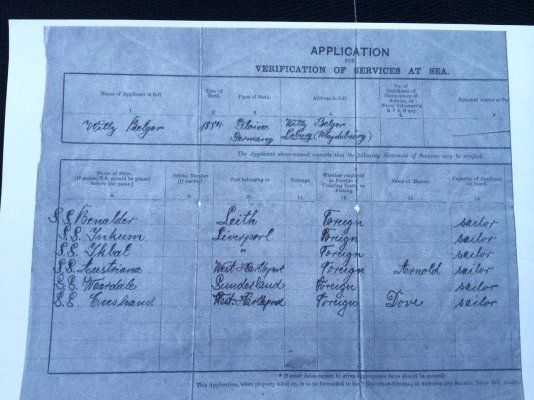 APPLICATION
FOR
VERIFICATION OF SERVICES AT SEA.
Name of Applicant in full. Year of Birth. Place of Birth. Address in full. No. of Certificate of Competency or Service, or Naval Volunteer's if any. Personal
1. 2. 3.
Willy Belger 1884 Germany Willy Belger Loburg (Magdeburg)
The Applicant above-named requests that the following Statement of Services may be verified.
Name of Ship. (If steam, S.S. should be placed before the name.) Official Number (if known). Port belonging to Tonnage. Whether employed in Foreign or Coasting trade, or Fishing. Name of Master. Capacity of Applicant on board.
8. 9. 10. 11. 12. 13. 14.
S.S. Benalder Leith Foreign sailor
S.S. Inkum Liverpool Foreign sailor
S.S. Ikbal " Foreign sailor
S.S. Austriana West Hartlepool Foreign Arnold sailor
S.S. Weardale Sunderland Foreign sailor
S.S. West Hartlepool Foreign Dove sailor
* If exact dates cannot be given approximate dates should be entered.
This Application, when properly filled up, is to be forwarded to the "REGISTRAR-GENERAL OF SHIPPING AND SEAMEN, Tower Hill, London,